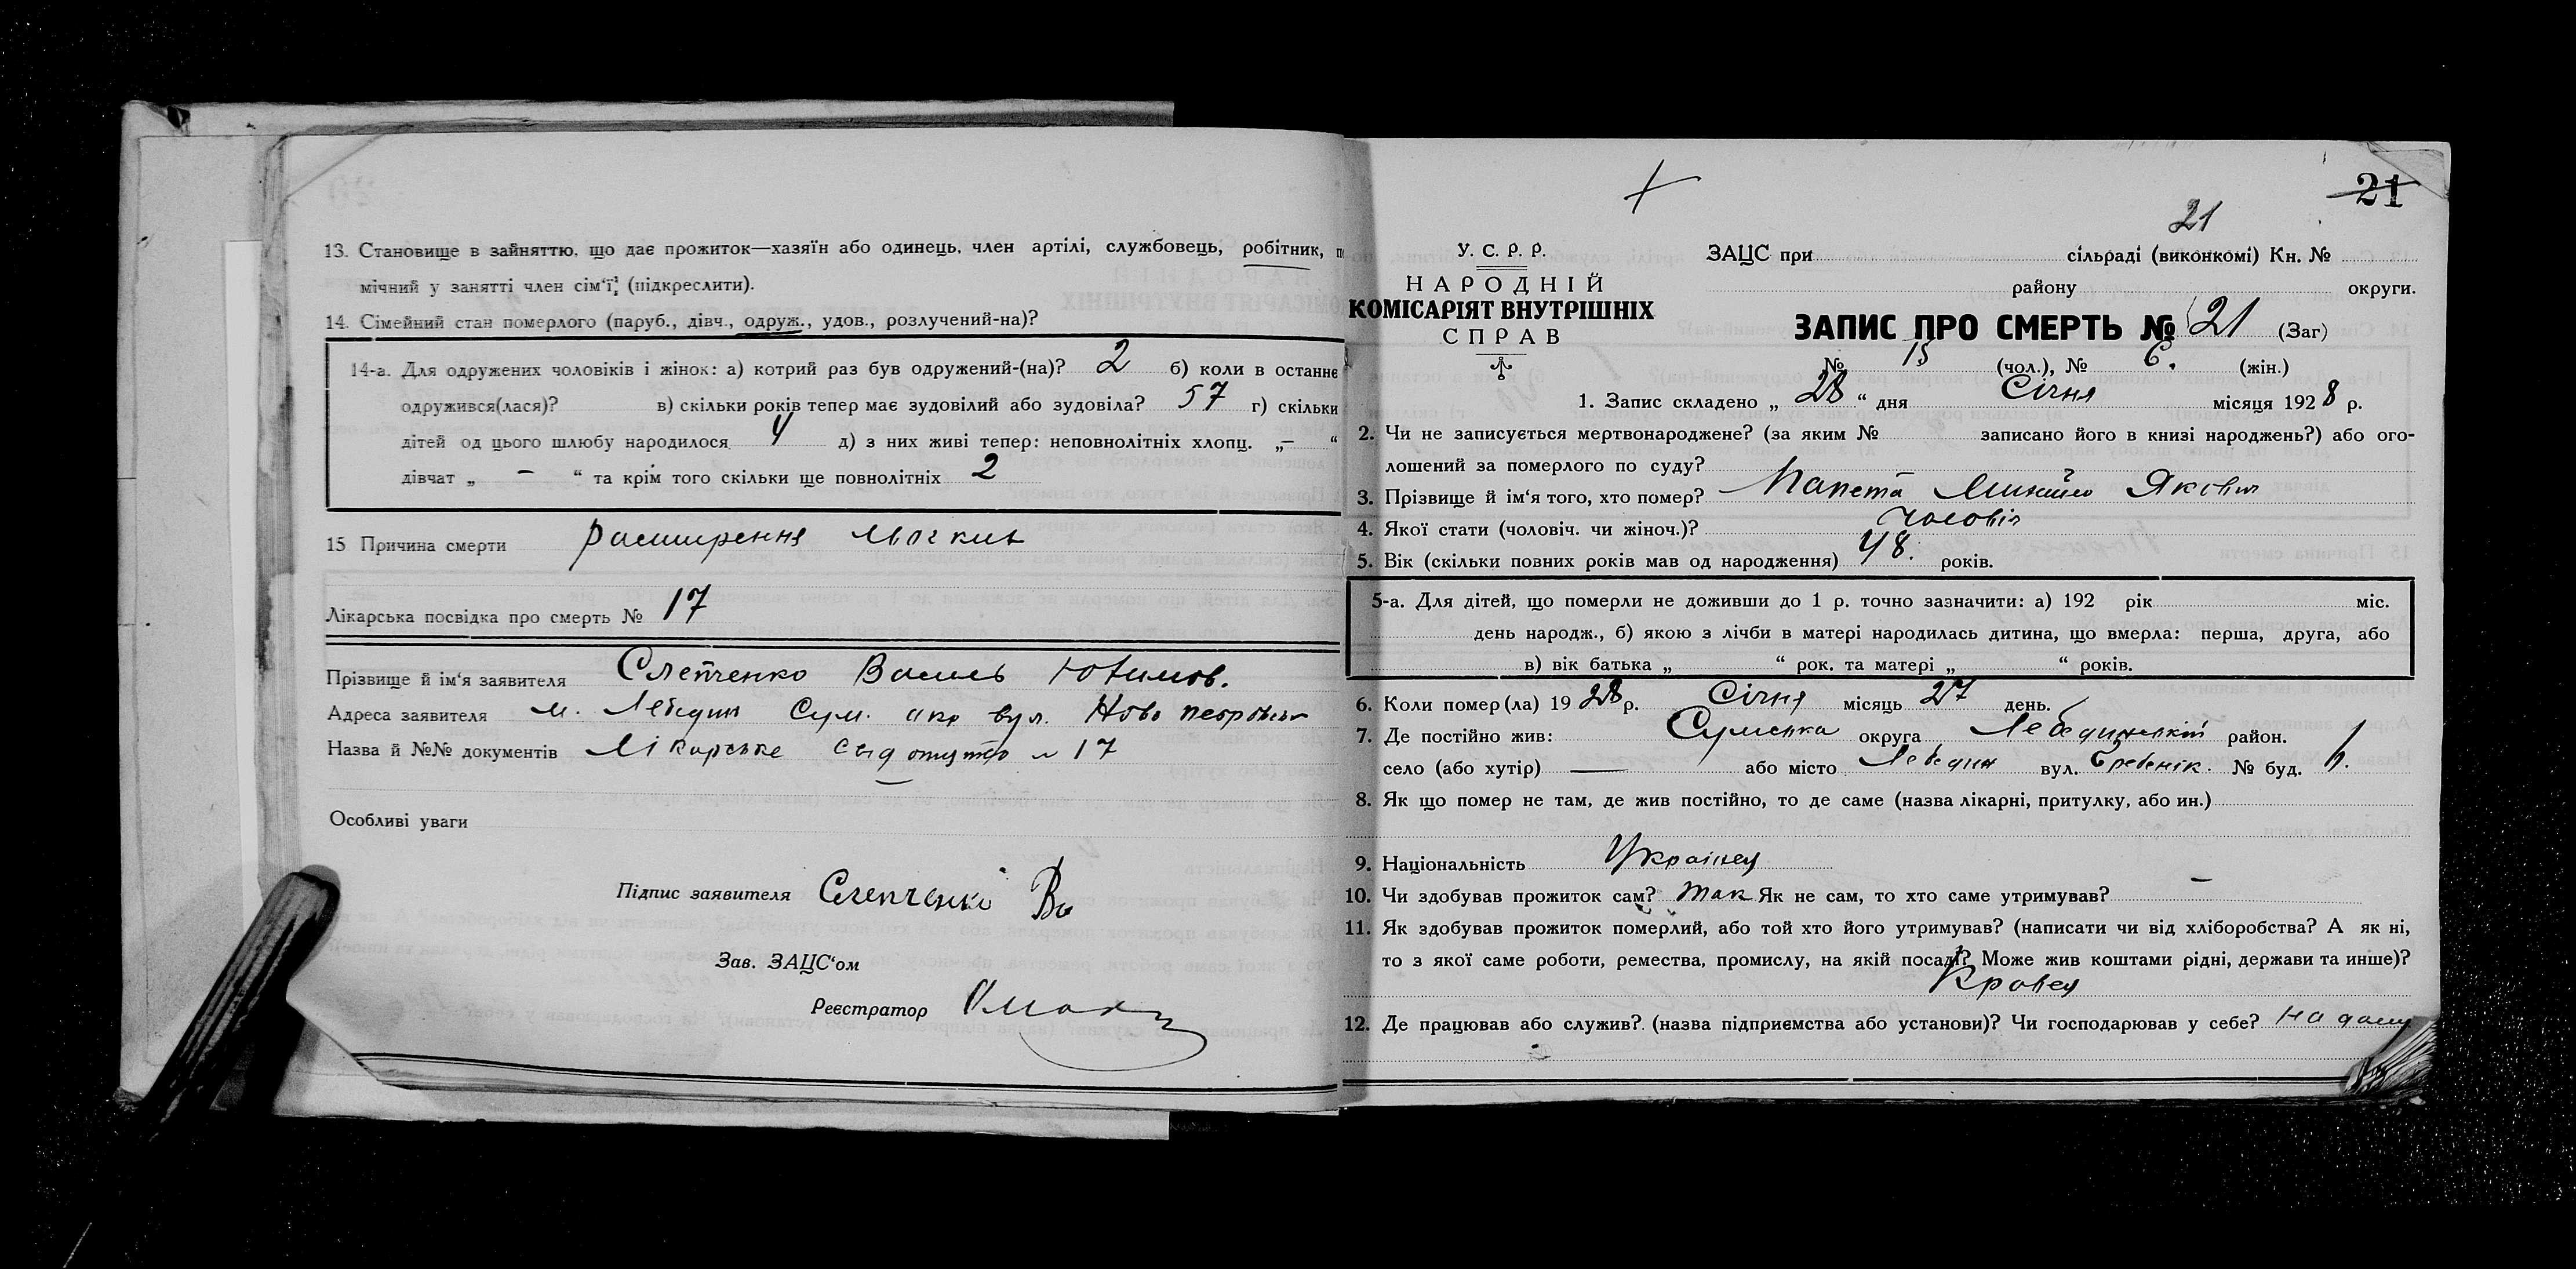 13. Становище в зайняттю, що дає прожиток—хазяїн або одинець, член артілі, службовець, робітник,
мічний у занятті член сім'ї, (підкреслити).
14. Сімейний стан померлого (паруб., дівч., одруж., удов., розлучений-на)?
14-а. Для одружених чоловіків і жінок: а) котрий раз був одружений-(на)? 2 б) коли в останнє
одружився(лася)? в) скільки років тепер має зудовілий або зудовіла? 57 г) скільки
дітей од цього шлюбу народилося 4 д) з них живі тепер: неповнолітніх хлопц. „— “
дівчат „ — “ та крім того скільки ще повнолітніх 2
15 Причина смерти расширення
Лікарська посвідка про смерть № 17
Прізвище й ім'я заявителя Слепченко Василь Юхимов.
Адреса заявителя м. Лебедин Сум. окр вул. Ново
Назва й №№ документів Лікарське № 17
Особливі уваги
Підпис заявителя Слепченко Ва
Зав. ЗАЦС'ом
Реєстратор
21
21
У. С. Р. Р.
НАРОДНІЙ
КОМІСАРІЯТ ВНУТРІШНІХ
СПРАВ
ЗАЦС при сільраді (виконкомі) Кн. №
району округи.
ЗАПИС ПРО СМЕРТЬ № 21 (Заг)
№ 15 (чол.), № 6. (жін.)
1. Запис складено „ 28 “ дня Січня місяця 1928 р.
2. Чи не записується мертвонароджене? (за яким № записано його в книзі народжень?) або ого-
лошений за померлого по суду?
3. Прізвище й ім'я того, хто помер? Михайло Якович
4. Якої стати (чоловіч. чи жіноч.)? чоловіч
5. Вік (скільки повних років мав од народження) 48. років.
5-а. Для дітей, що померли не доживши до 1 р. точно зазначити: а) 192 рік міс.
день народж., б) якою з лічби в матері народилась дитина, що вмерла: перша, друга, або
в) вік батька „ “ рок. та матері „ “ років.
6. Коли помер(ла) 1928 р. Січня місяць 27 день.
7. Де постійно жив: Сумська округа Лебединський район.
село (або хутір) — або місто Лебедин вул. № буд.
8. Як що помер не там, де жив постійно, то де саме (назва лікарні, притулку, або ин.)
9. Національність Українец
10. Чи здобував прожиток сам? так Як не сам, то хто саме утримував? —
11. Як здобував прожиток померлий, або той хто його утримував? (написати чи від хліборобства? А як ні,
то з якої саме роботи, ремества, промислу, на якій посаді? Може жив коштами рідні, держави та инше)?
Кравец
12. Де працював або служив? (назва підприємства або установи)? Чи господарював у себе? на дому